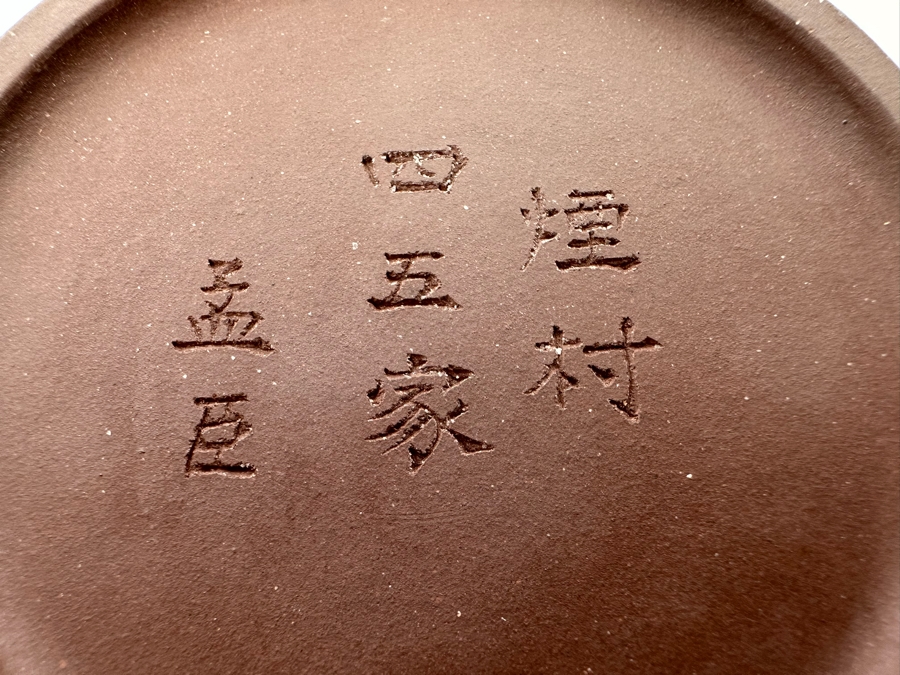 煙村
四五家
孟臣